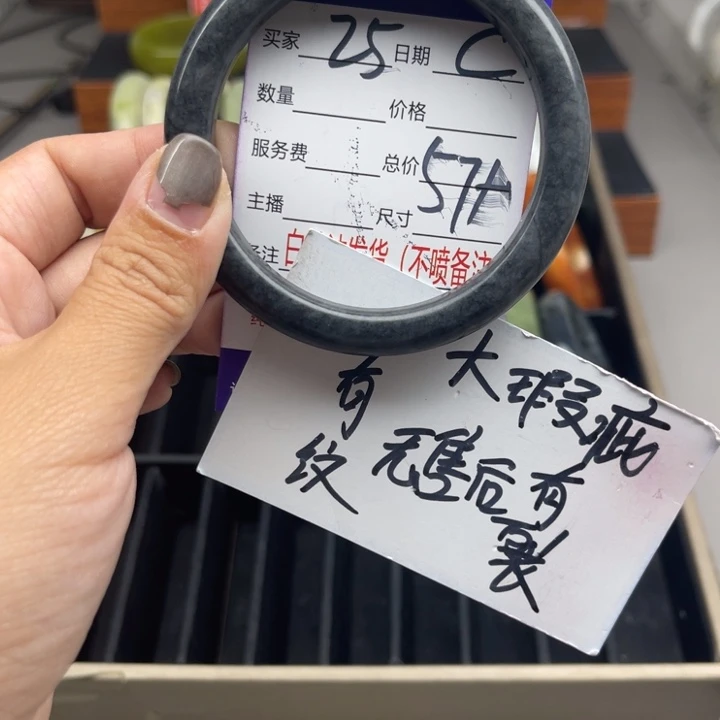 买家 25 日期 C
数量 价格
服务费 总价 57+
主播 尺寸
备注
发货（不喷备注
大瑕疵
有纹
无售后有裂